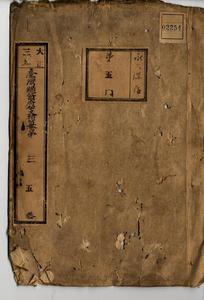 02254
永保存
第五門
大正
三五
臺灣總督府公文類纂
三五卷